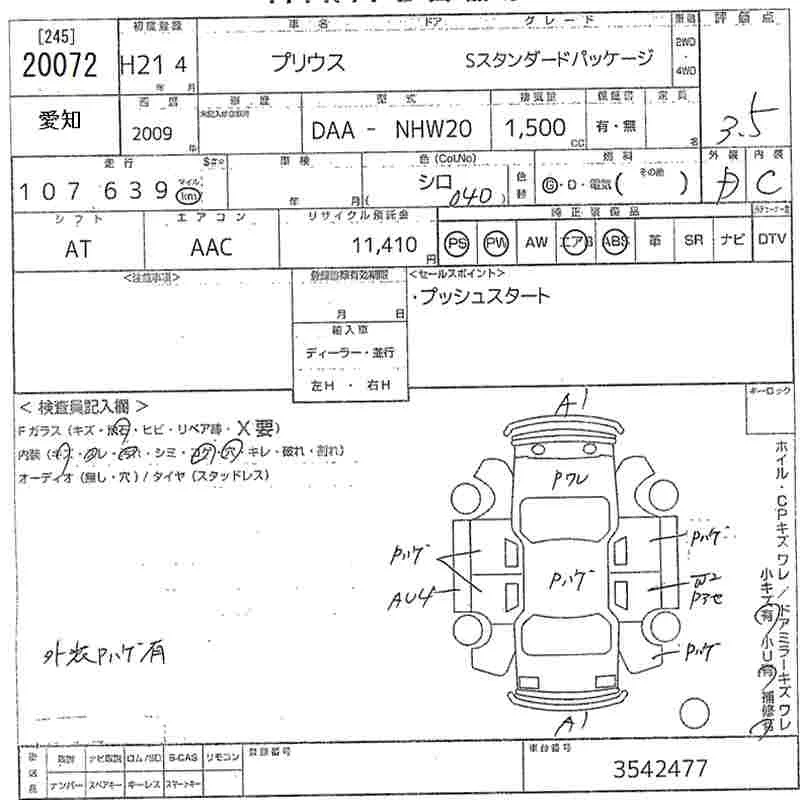 [245]
20072
初度登録
車名
ドア
グレード
評価点
H21 4
年 月
プリウス
Sスタンダードパッケージ
2WD
・
4WD
愛知
2009
年
型式
DAA - NHW20
排気量
1,500
CC
有・無
名
3.5
走行
107 639
マイル
km
車検
年 月
色 (Col,No)
シロ
040
色替
燃料
G・D・電気( その他 )
外装
D
内装
C
シフト
AT
エアコン
AAC
リサイクル預託金
11,410
円
純正装備品
PS
PW
AW
エアB
ABS
革
SR
ナビ
DTV
<注意事項>
月 日
輸入車
ディーラー・並行
左H ・ 右H
<セールスポイント>
・プッシュスタート
キーロック
< 検査員記入欄 >
Fガラス (キズ・飛石・ヒビ・リペア跡・X要)
内装 (キズ・スレ・汚れ・シミ・コゲ・穴・キレ・破れ・割れ)
オーディオ (無し・穴) / タイヤ (スタッドレス)
A1
Pワレ
Pハゲ
Pハゲ
Pハゲ
AU4
W2
Pハゲ
A1
外装Pハゲ有
ホイル・CPキズ ワレ / ドアミラーキズ ワレ
小キズ有 小U有 補修有
取説
ナビ取説
ロム/SD
B-CAS
リモコン
ナンバー
スペアキー
キーレス
スマートキー
登録番号
車台番号
3542477